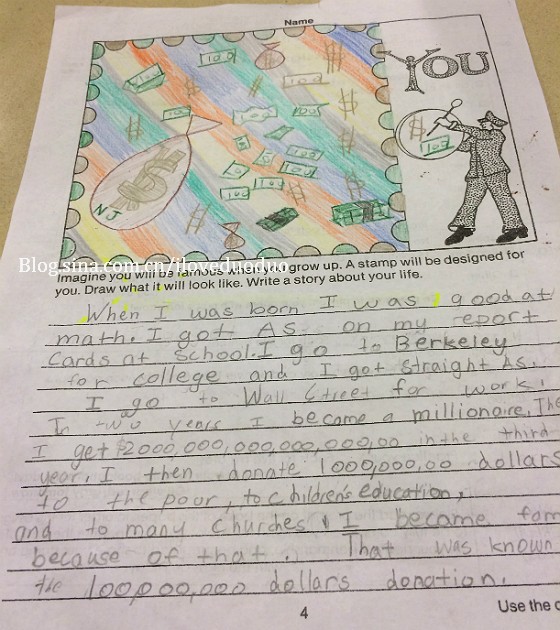 Name
YOU
100
100
100
100
100
100
100
100
100
100
100
100
$
NJ
Blog.sina.com.cn/iloveduoduo
Imagine you will be famous when you grow up. A stamp will be designed for
you. Draw what it will look like. Write a story about your life.
When I was born I was good at
math. I got As on my report
Cards at School. I go to Berkeley
for college and I got straight As.
I go to Wall Street for work!
In two years I became a millionaire. The
I get $2000,000,000,000,000,00 in the third
year. I then donate 1000,000,00 dollars
to the poor, to children's education,
and to many churches. I became fam
because of that. That was known
the 100,000,000 dollars donation.
4
Use the